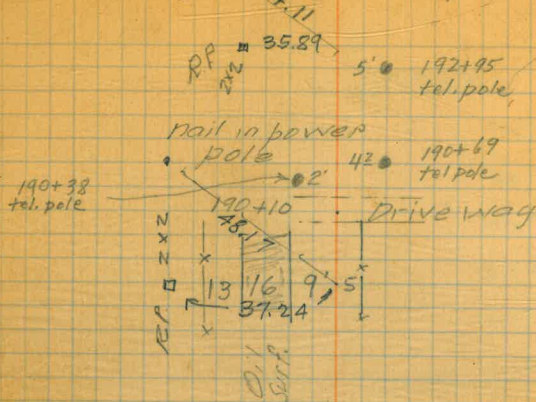 .11
35.89
R.P.
2x2
5' 192+95
tel. pole
nail in power
pole
4² 190+69
tel pole
2'
190+38
tel. pole
190+10
Drive way
48.17
R.P. 2x2
13 16 9' 5
37.24
Oil
Surf.